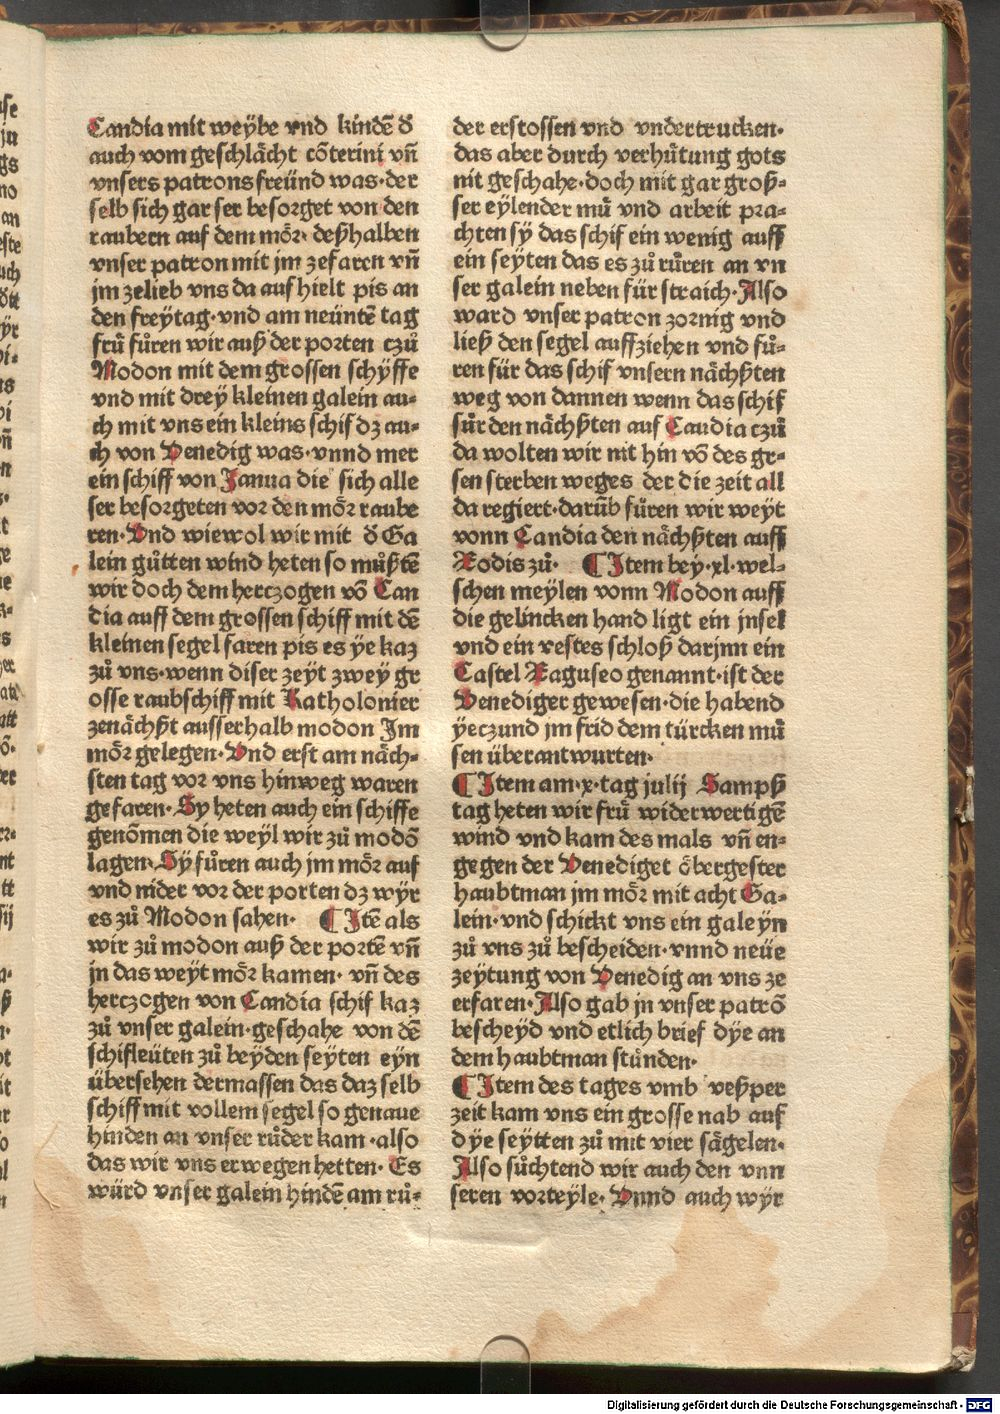 Candia mit weÿbe vnd kindē d̄
auch vom geschlächt cōterini vn̄
vnsers patrons freünd was·der
selb sich gar ser besorget von den
raubern auf dem mör· deßhalben
vnser patron mit jm zefaren vn̄
jm zelieb vns da auf hielt pis an
den freÿtag·vnd am neüntē tag
frü füren wir auß der porten czů
Modon mit dem grossen schÿffe
vnd mit dreÿ kleinen galein au-
ch mit vns ein kleins schif dz au-
ch von Venedig was·vnnd mer
ein schiff von Janua die sich alle
ser besorgeten vor den mör raube
ren·Vnd wiewol wir mit d̄ Ga
lein gůtten wind heten so můßtē
wir doch dem herczogen vō Can
dia auff dem grossen schiff mit dē
kleinen segel faren pis es ÿe kaz
zů vns·wenn diser zeÿt zweÿ gr
osse raubschiff mit Katholonier
zenächßt ausserhalb modon Jm
mör gelegen·Vnd erst am näch-
sten tag vor vns hinweg waren
gefaren·Sy heten auch ein schiffe
genōmen die weÿl wir zů modō
lagen·Sÿ fůren auch jm mör auf
vnd nider vor der porten dz wÿr
es zů Modon sahen· ¶Jtē als
wir zů modon auß der portē vn̄
jn das weÿt mör kamen· vn̄ des
herczogen von Candia schif kaz
zů vnser galein·geschahe von dē
schifleüten zů beÿden seÿten eÿn
übersehen dermassen das daz selb
schiff mit vollem segel so genaue
hinden an vnser růder kam·also
das wir vns erwegen hetten· Es
würd vnser galein hindē am rů-
der erstossen vnd vndertrucken·
das aber durch verhütung gots
nit geschahe·doch mit gar groß-
ser eÿlender mü vnd arbeit pra-
chten sÿ das schif ein wenig auff
ein seÿten das es zů rüren an vn
ser galein neben für straich·Also
ward vnser patron zornig vnd
ließ den segel auffziehen vnd fů-
ren für das schif vnsern nächßten
weg von dannen wenn das schif
fůr den nächßten auf Candia czů
da wolten wir nit hin vō des gr-
sen sterben weges der die zeit all
da regiert·darūb füren wir weÿt
vonn Candia den nächßten auff
Rodis zů· ¶Jtem bey·xl·wel-
schen meÿlen vonn Modon auff
die gelincken hand ligt ein jnsel
vnd ein vestes schloß darjnn ein
Castel Raguseo genannt·ist der
Venediger gewesen·die habend
ÿeczund jm frid dem türcken mü
sen überantwurten·
¶Jtem am·x·tag julij Sampß
tag heten wir frü widerwertigē
wind vnd kam des mals vn̄ en-
gegen der Venediget öbergester
haubtman jm mör mit acht Ga-
lein·vnd schickt vns ein galeÿn
zů vns zů bescheiden·vnnd neüe
zeÿtung von Venedig an vns ze
erfaren·Also gab jn vnser patrō
bescheÿd vnd etlich brief dÿe an
dem haubtman stünden·
¶Jtem des tages vmb veßper
zeit kam vns ein grosse nab auf
dÿe seÿtten zů mit vier sägelen·
Also sůchtend wir auch den vnn
seren vorteÿle· Vnnd auch wÿr
Digitalisierung gefördert durch die Deutsche Forschungsgemeinschaft - DFG